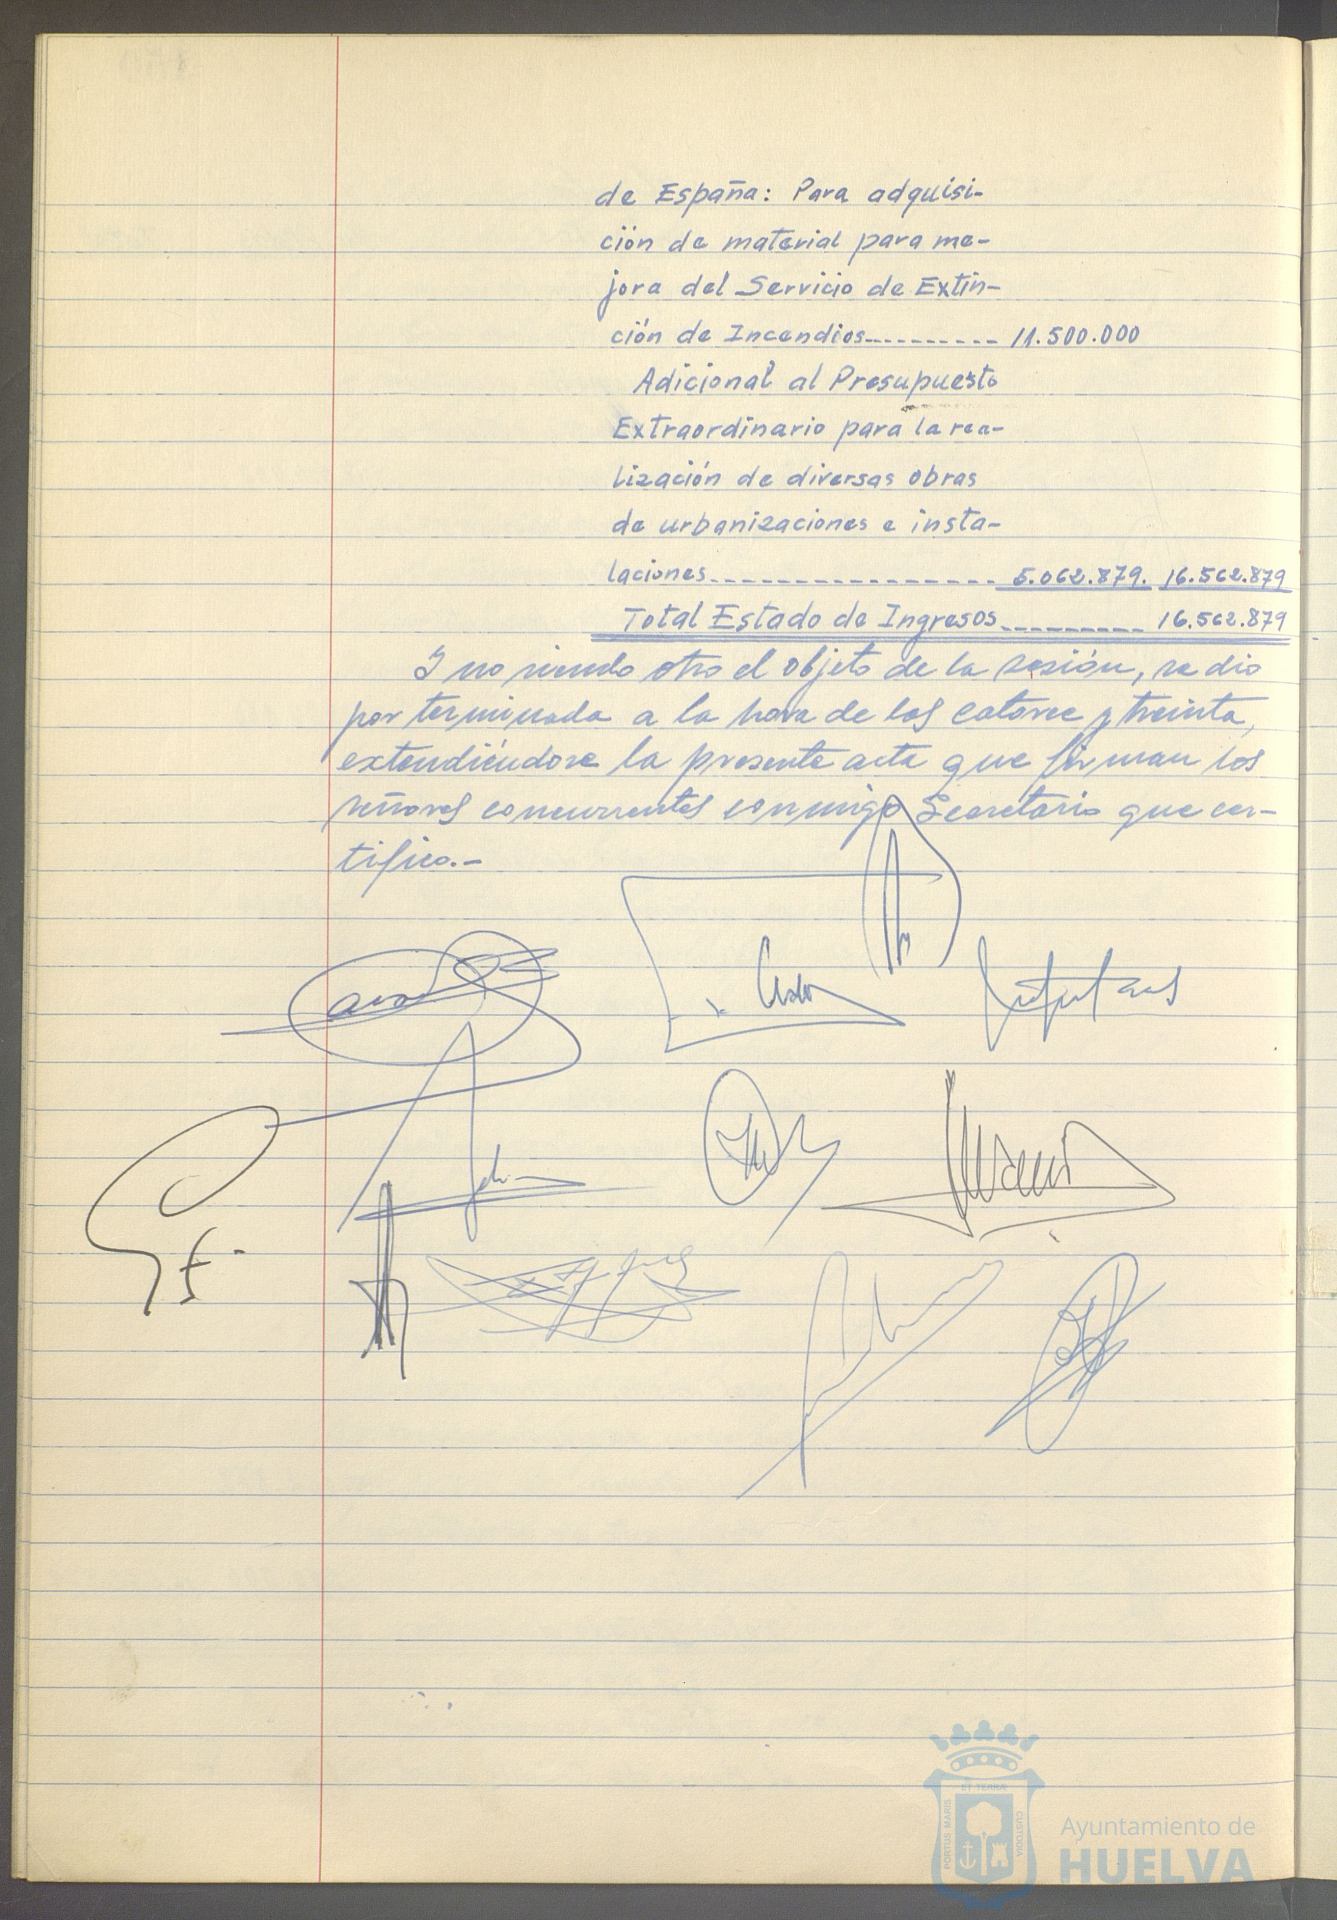 de España: Para adquisi-
ción de material para me-
jora del Servicio de Extin-
ción de Incendios---------- 11.500.000
Adicional al Presupuesto
Extraordinario para la rea-
lización de diversas obras
de urbanizaciones e insta-
laciones------------------ 5.062.879. 16.562.879
Total Estado de Ingresos--------- 16.562.879
Y no siendo otro el objeto de la sesión, se dio
por terminada a la hora de las catorce y treinta,
extendiéndose la presente acta que firman los
señores concurrentes conmigo Secretario que cer-
tifico.-
PORTUS MARIS
ET TERRAE
CUSTODIA
Ayuntamiento de
HUELVA